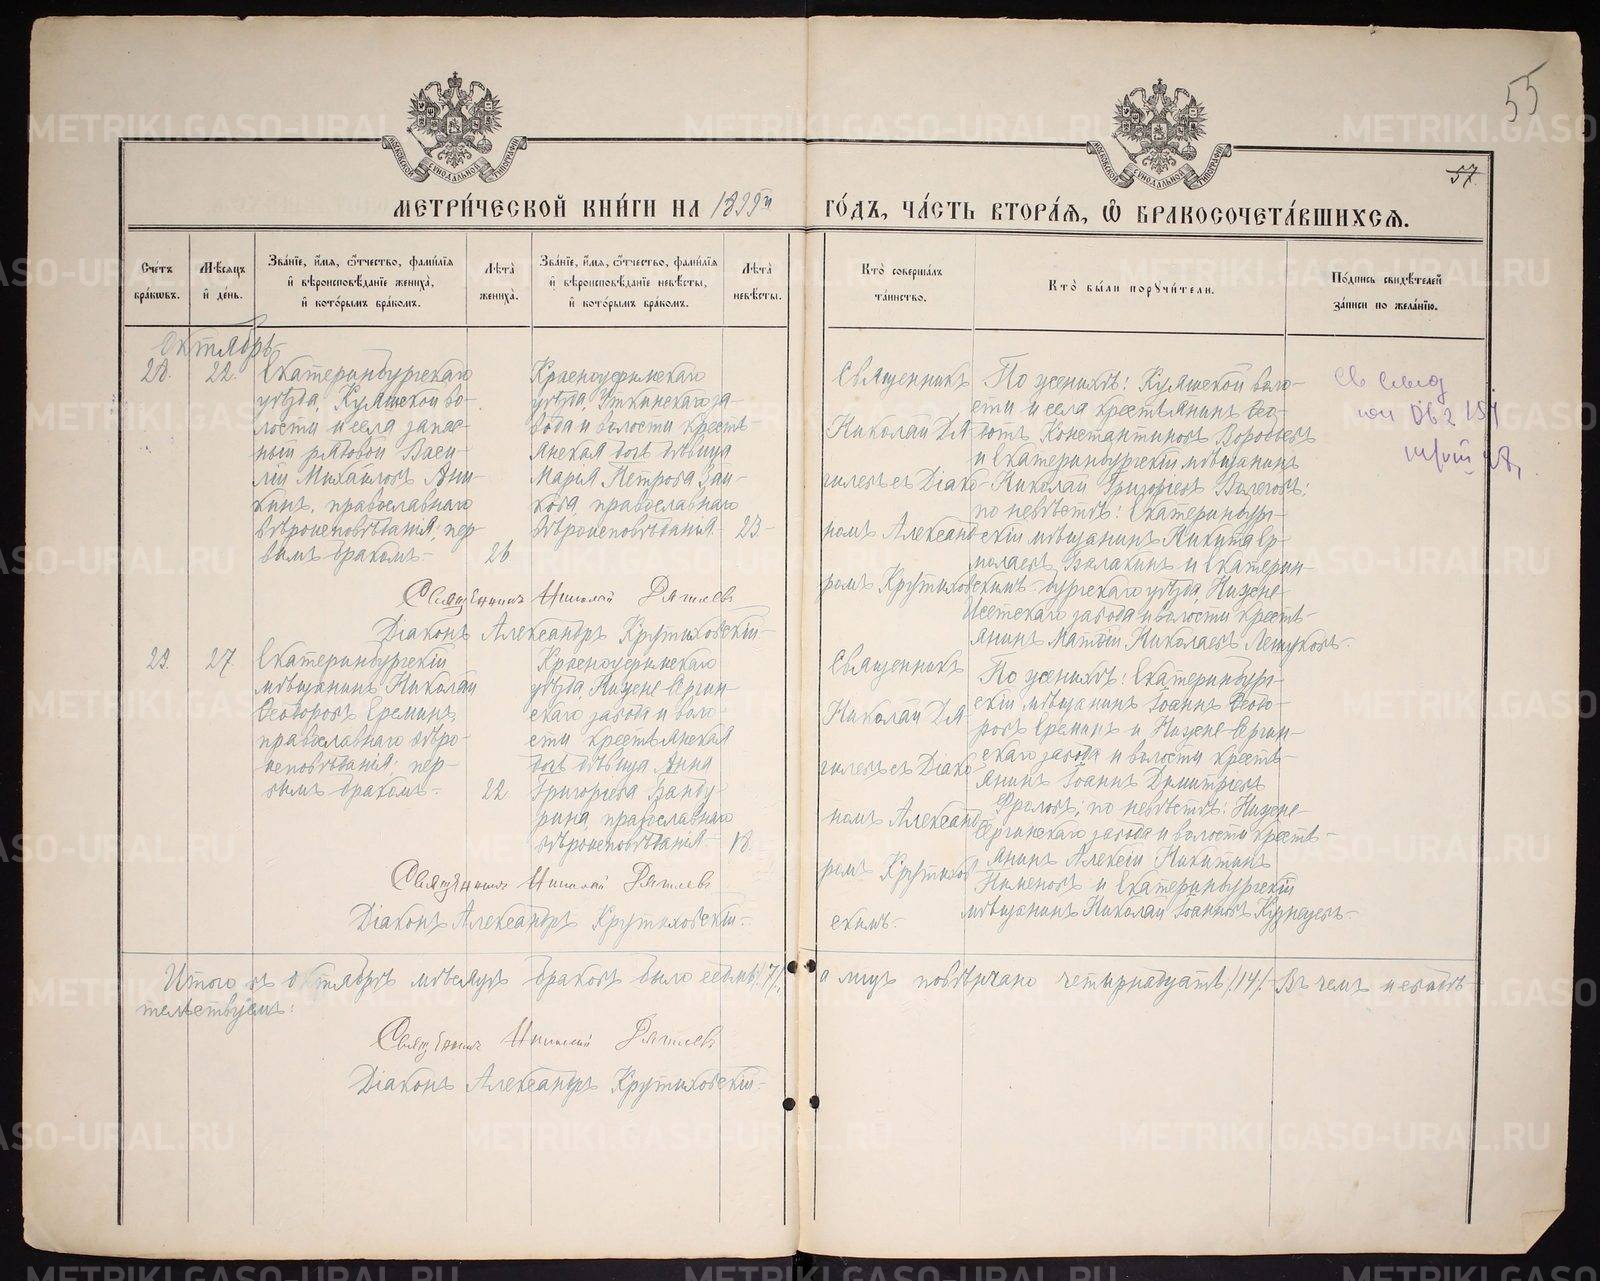 55
57
МОСКОВСКОЙ СѴНОДАЛЬНОЙ ТИПОГРАФІИ
МОСКОВСКОЙ СѴНОДАЛЬНОЙ ТИПОГРАФІИ
МЕТРИ́ЧЕСКОЙ КНИ́ГИ НА 1899й ГО́ДЪ, ЧА́СТЬ ВТОРА́Я, Ѽ БРАКОСОЧЕТА́ВШИХСЯ.
Сче́тъ бра́кѡвъ.
Мѣ́сяцъ и҆ де́нь.
Зва́нїе, и҆́мя, ѻ҆́тчество, фами́лїя и҆ вѣроисповѣ́данїе жениха̀, и҆ кото́рымъ бра́комъ.
Лѣ́та̀ жениха̀.
Зва́нїе, и҆́мя, ѻ҆́тчество, фами́лїя и҆ вѣроисповѣ́данїе невѣ́сты, и҆ кото́рымъ бра́комъ.
Лѣ́та̀ невѣ́сты.
Кто̀ соверша́лъ та́инство.
Кто̀ бы́ли порꙋчи́тели.
По́дпись свидѣ́телей за́писи по жела́нїю.
Октябрь
28.
22.
Екатеринбургскаго
уѣзда, Куяшской во-
лости и села запас-
ный рядовой Васи-
лій Михайловъ Ани-
кинъ, православнаго
вѣроисповѣданія: пер-
вымъ бракомъ-
26
Красноуфимскаго
уѣзда, Уткинскаго за-
вода и волости кресть-
янская дочь дѣвица
Марія Петрова Зай-
кова, православнаго
вѣроисповѣданія.
23-
Священникъ
Николай Дя-
гилевъ съ Діако-
номъ Александ-
ромъ Крутиховскимъ
По женихѣ: Куяшской воло-
сти и села крестьянинъ Ѳео-
дотъ Константиновъ Воробьевъ
и Екатеринбургскій мѣщанинъ
Николай Григорьевъ
по невѣстѣ: Екатеринбург-
скій мѣщанинъ Никита Ер-
молаевъ Балакинъ и Екатерин-
бургскаго уѣзда, Нижне-
Исетскаго завода и волости кресть-
янинъ Матѳій Николаевъ
Священникъ Николай Дягилевъ
Діаконъ Александръ Крутиховскій-
29.
27.
Екатеринбургскій
мѣщанинъ Николай
Ѳеодоровъ Ереминъ,
православнаго вѣро-
исповѣданія: пер-
вымъ бракомъ-
22
Красноуфимскаго
уѣзда, Нижне-Сергин-
скаго завода и воло-
сти крестьянская
дочь дѣвица Анна
Григорьева Банду-
рина, православнаго
вѣроисповѣданія-
18
Священникъ
Николай Дя-
гилевъ съ Діако-
номъ Александ-
ромъ Крутихов-
скимъ-
По женихѣ: Екатеринбург-
скій мѣщанинъ Іоаннъ Ѳеодо-
ровъ Ереминъ и Нижне-Сергин-
скаго завода и волости кресть-
янинъ Іоаннъ Димитріевъ
Фроловъ; по невѣстѣ: Нижне-
Сергинскаго завода и волости кресть-
янинъ Алексій Никитинъ
Пименовъ и Екатеринбургскій
мѣщанинъ Николай Іоанновъ Кузнецовъ-
Священникъ Николай Дягилевъ
Діаконъ Александръ Крутиховскій-
Итого въ октябрѣ мѣсяцѣ браковъ было семь /7/, а лицъ повѣнчано четырнадцать /14/- Въ чемъ и свидѣ-
тельствуемъ:
Священникъ Николай Дягилевъ
Діаконъ Александръ Крутиховскій-
METRIKI.GASO-URAL.RU